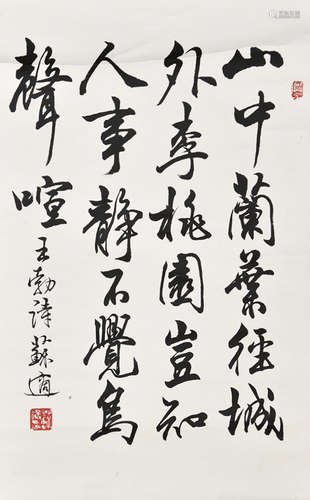 山中蘭葉徑城
外李桃園豈知
人事靜不覺鳥
聲喧
王勃詩蘇適